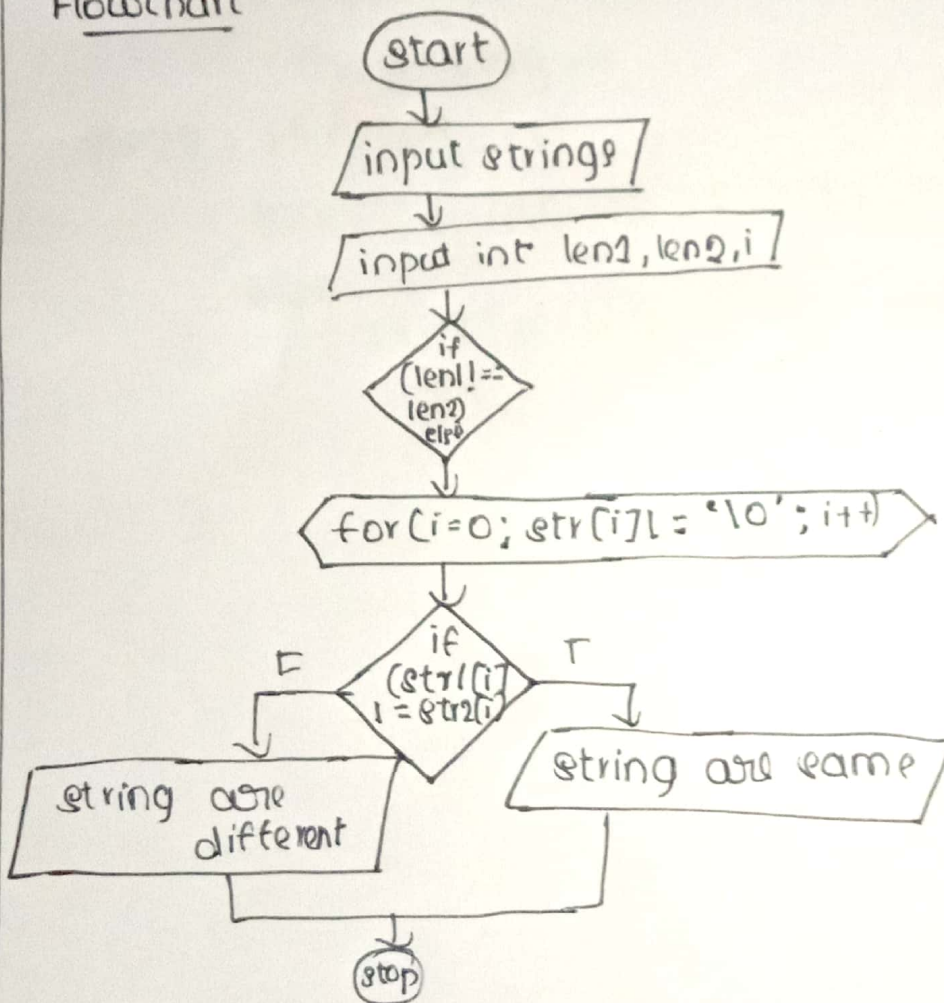 Flowchart
start
input strings
input int len1, len2, i
if
(len1! ==
len2)
else
for (i=0; str[i]! = '\0'; i++)
if
F
T
(str1[i]
! = str2[i])
string are same
string are
different
stop